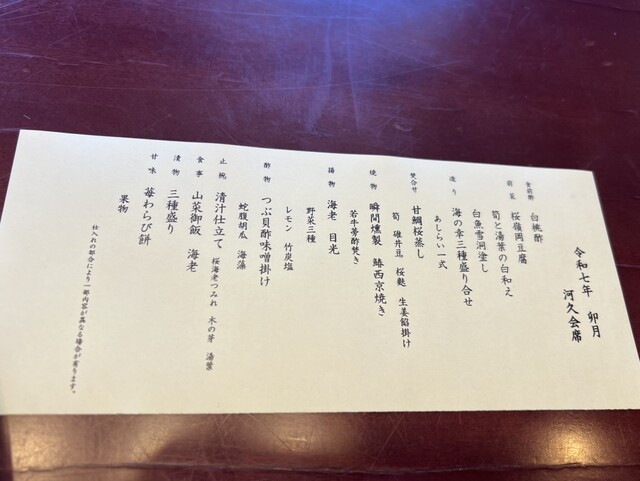 令和七年 卯月
河久会席
食前酢 白桃酢
前菜 桜嶺岡豆腐
筍と湯葉の白和え
白魚雪洞塗し
造り 海の幸三種盛り合せ
あしらい一式
焚合せ 甘鯛桜蒸し
筍 碓井豆 桜麩 生姜餡掛け
焼物 瞬間燻製 鰆西京焼き
若牛蒡酢焚き
揚物 海老 目光
野菜三種
レモン 竹炭塩
酢物 つぶ貝酢味噌掛け
蛇腹胡瓜 海藻
止椀 清汁仕立て 桜海老つみれ 木の芽 湯葉
食事 山菜御飯 海老
漬物 三種盛り
甘味 苺わらび餅
果物
仕入れの都合により一部内容が異なる場合が有ります。